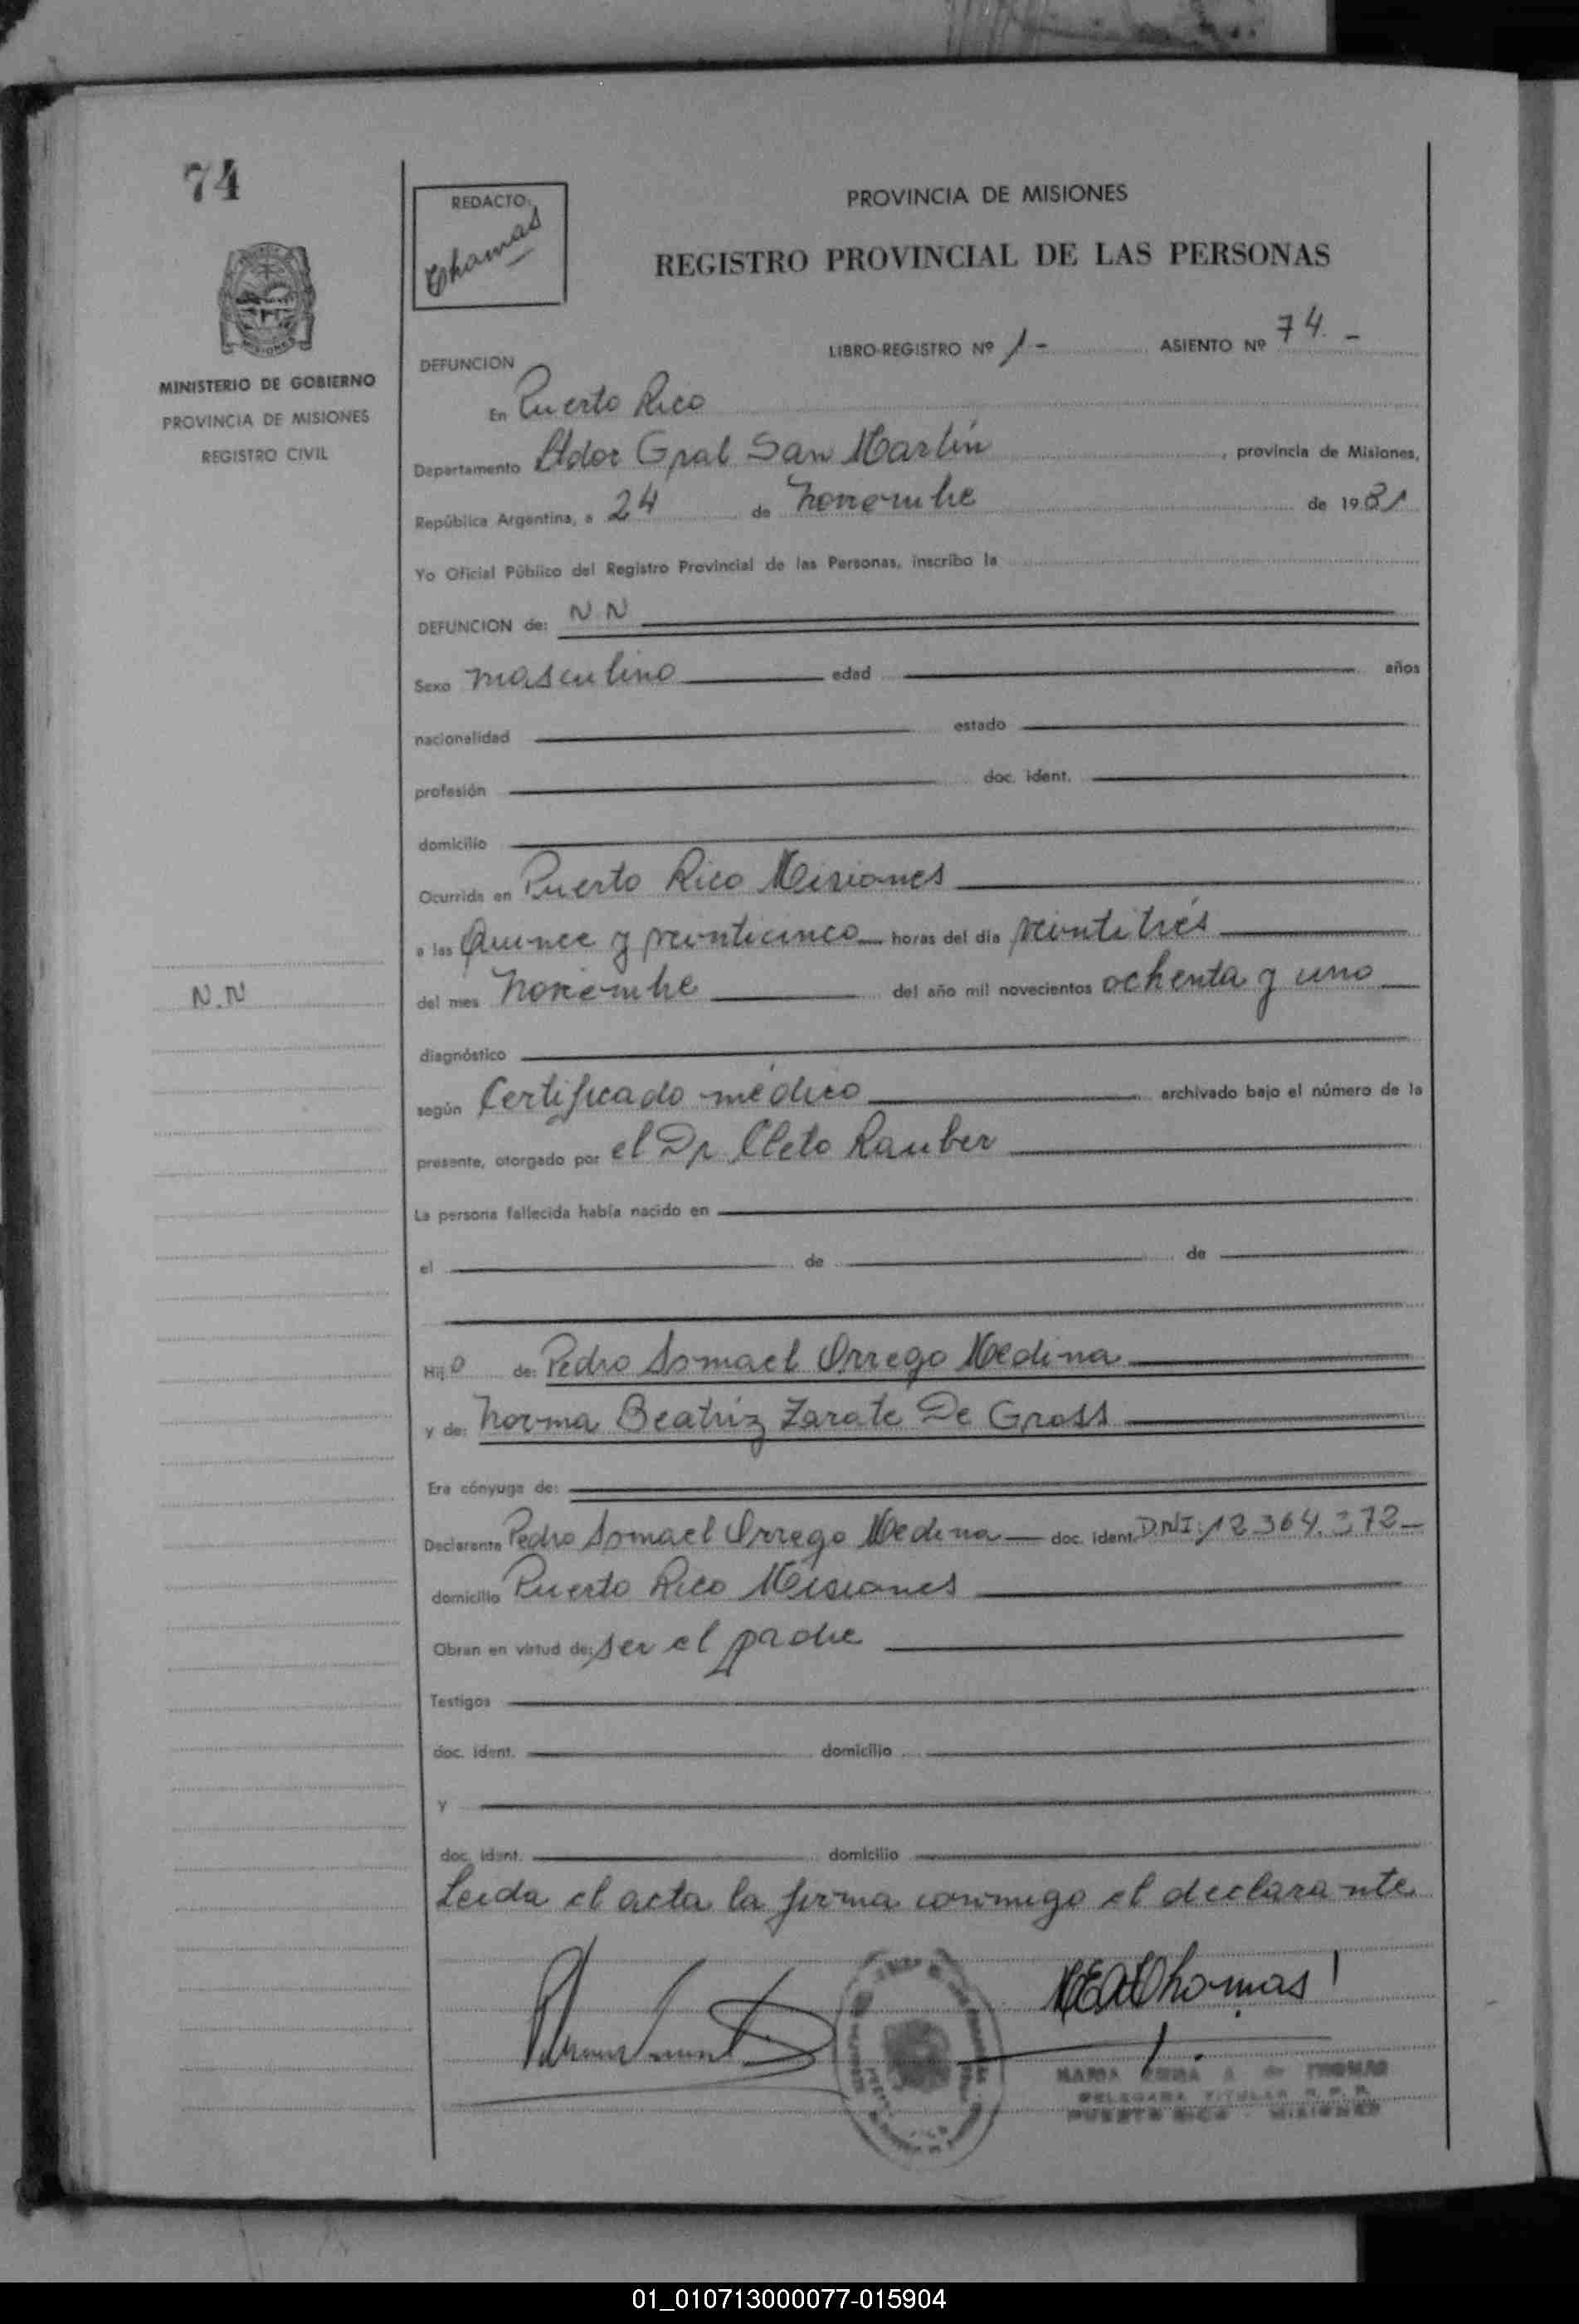 74
REDACTO:
Thomas
PROVINCIA DE MISIONES
REGISTRO PROVINCIAL DE LAS PERSONAS
MINISTERIO DE GOBIERNO
PROVINCIA DE MISIONES
REGISTRO CIVIL
LIBRO-REGISTRO Nº 1- ASIENTO Nº 74.-
DEFUNCION
En Puerto Rico
Departamento Ldor Gral San Martín, provincia de Misiones,
República Argentina, a 24 de noviembre de 1981
Yo Oficial Público del Registro Provincial de las Personas, inscribo la
DEFUNCION de: N N
Sexo masculino edad años
nacionalidad estado
profesión doc. ident.
domicilio
Ocurrida en Puerto Rico Misiones
a las Quince y veinticinco horas del día veintitrés
N.N
del mes noviembre del año mil novecientos ochenta y uno
diagnóstico
según Certificado médico archivado bajo el número de la
presente, otorgado por el Dr. Cleto Rauber
La persona fallecida había nacido en
el de de
Hijo de: Pedro Ismael Orrego Medina
y de: Norma Beatriz Zarate De Gross
Era cónyuge de:
Declarante Pedro Ismael Orrego Medina doc. ident. D.N.I: 12.364.372-
domicilio Puerto Rico Misiones
Obran en virtud de: ser el padre
Testigos
doc. ident. domicilio
y
doc. ident. domicilio
Leida el acta la firma conmigo el declarante
MEAThomas
MARIA A de THOMAS
DELEGADA TITULAR R. P. P.
PUERTO RICO - MISIONES
01_010713000077-015904